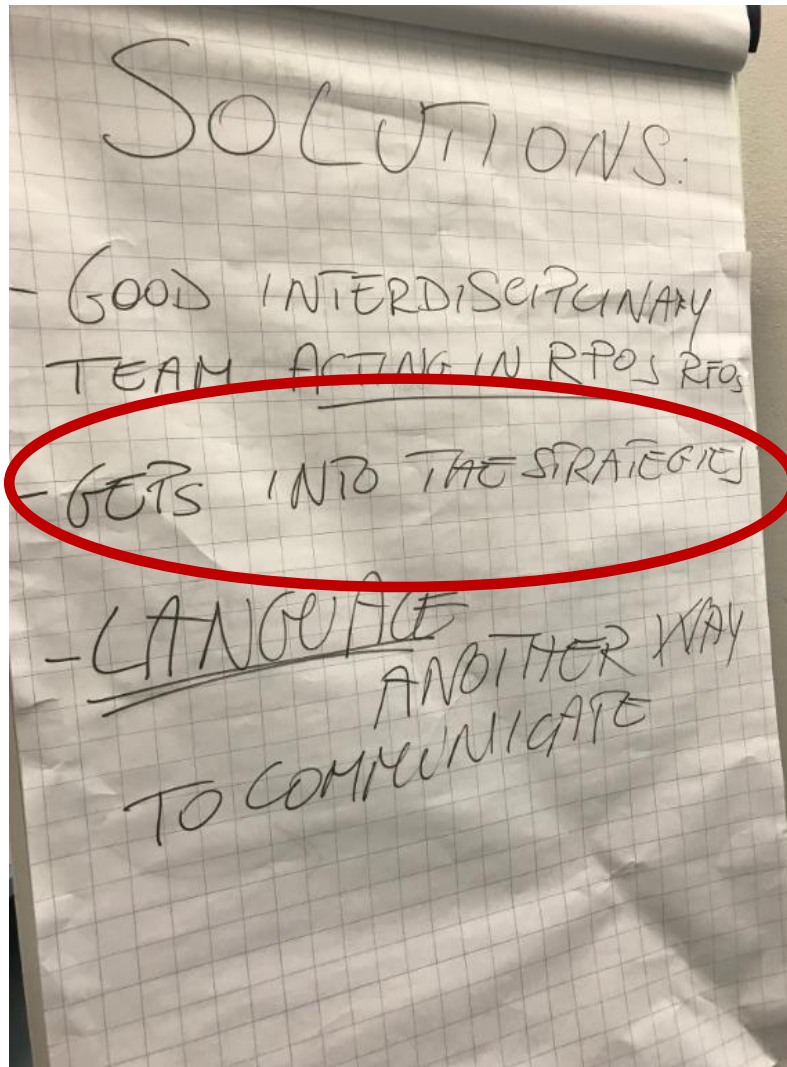 SOLUTIONS:
- GOOD INTERDISCIPLINARY
TEAM ACTING IN RPOs RFOs
- GETS INTO THE STRATEGIES
- LANGUAGE
ANOTHER WAY
TO COMMUNICATE